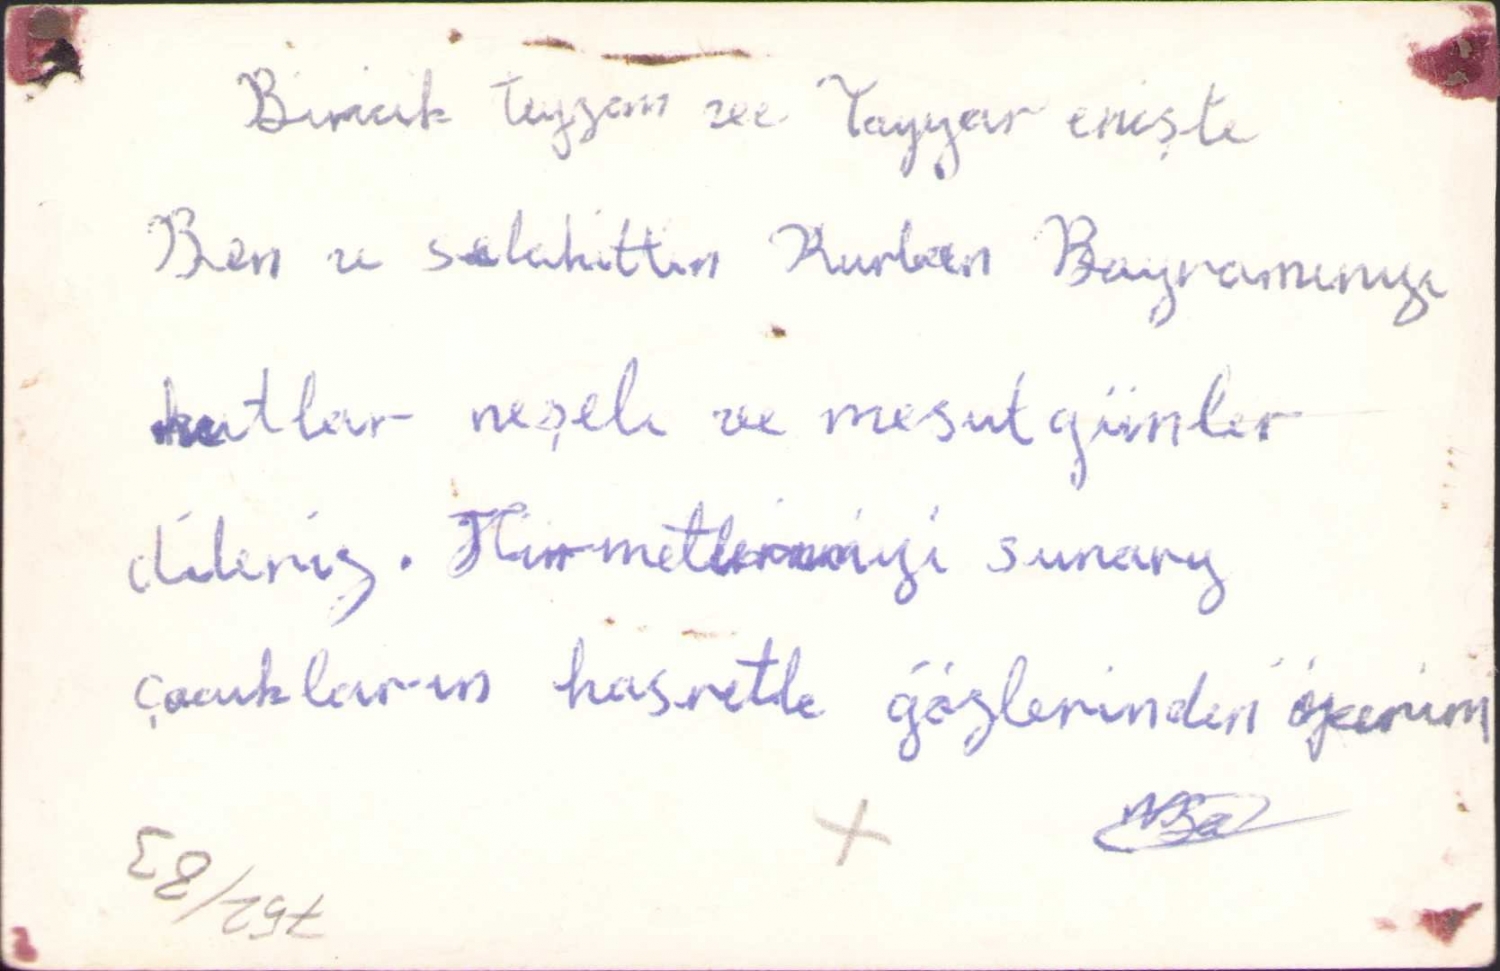 Biricik teyzem ve Tayyar enişte
Ben ve selahittin Kurban Bayramınızı
kutlar neşeli ve mesut günler
dileriz. Hürmetlerimizi sunarız
çocukların hasretle gözlerinden öperim
752/83